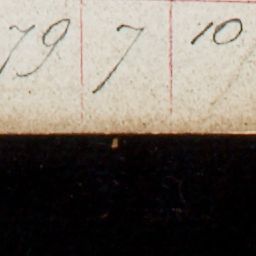 79 7 10